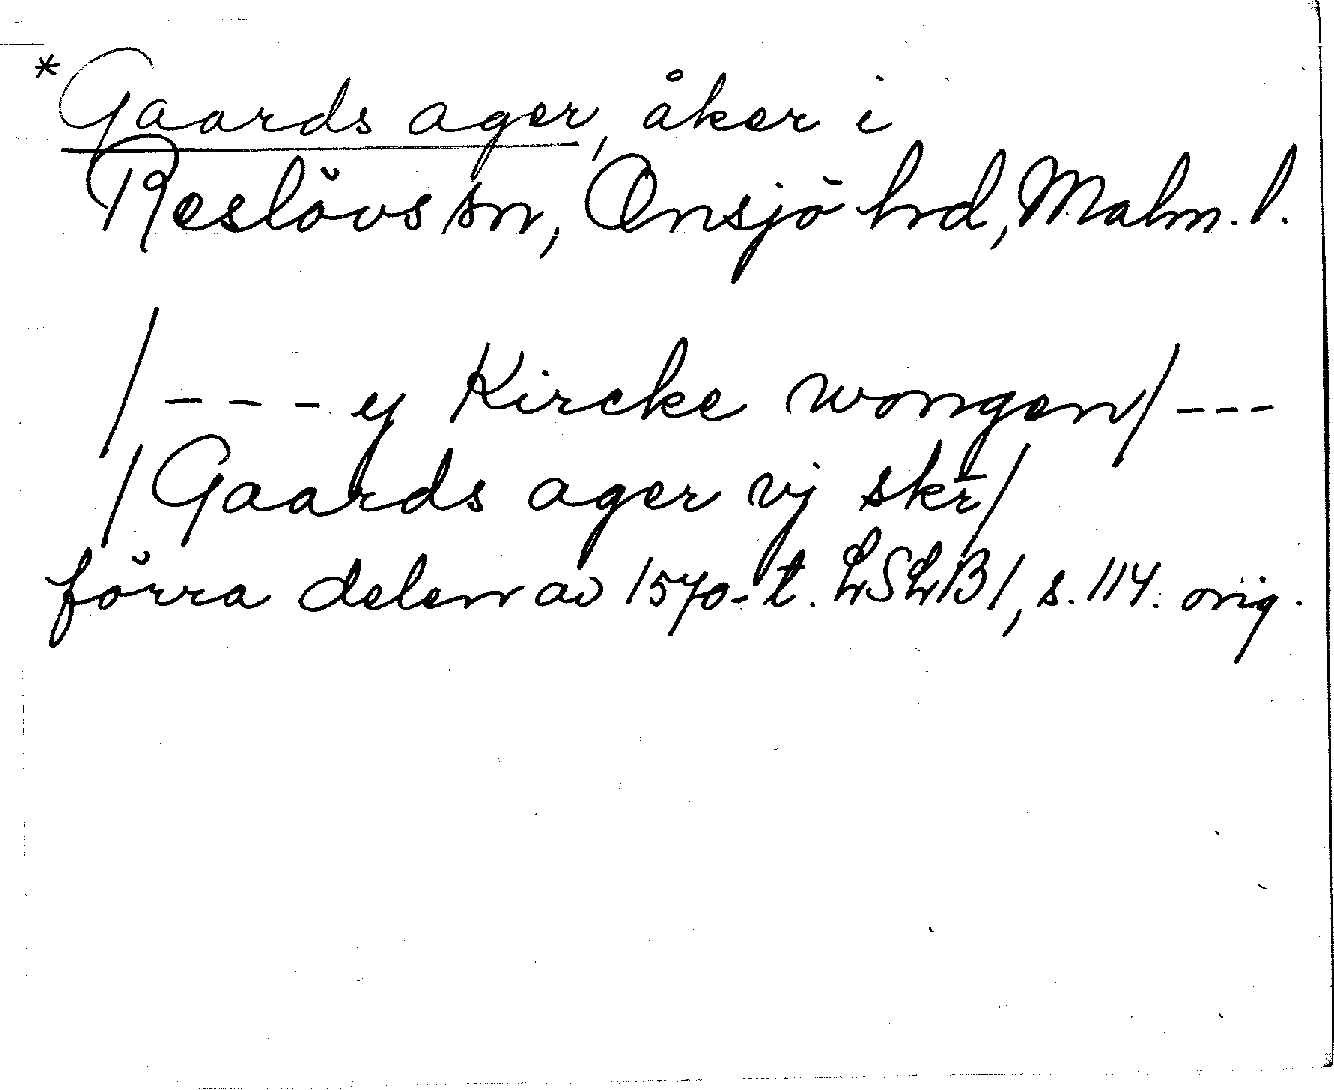 *Gaards ager, åker i
Reslövs sn, Onsjö hrd, Malm. l.
/---y Kircke wongen/---
/Gaards ager vj skr/
förra delen av 1570-t. LSLB1, s. 114. orig.